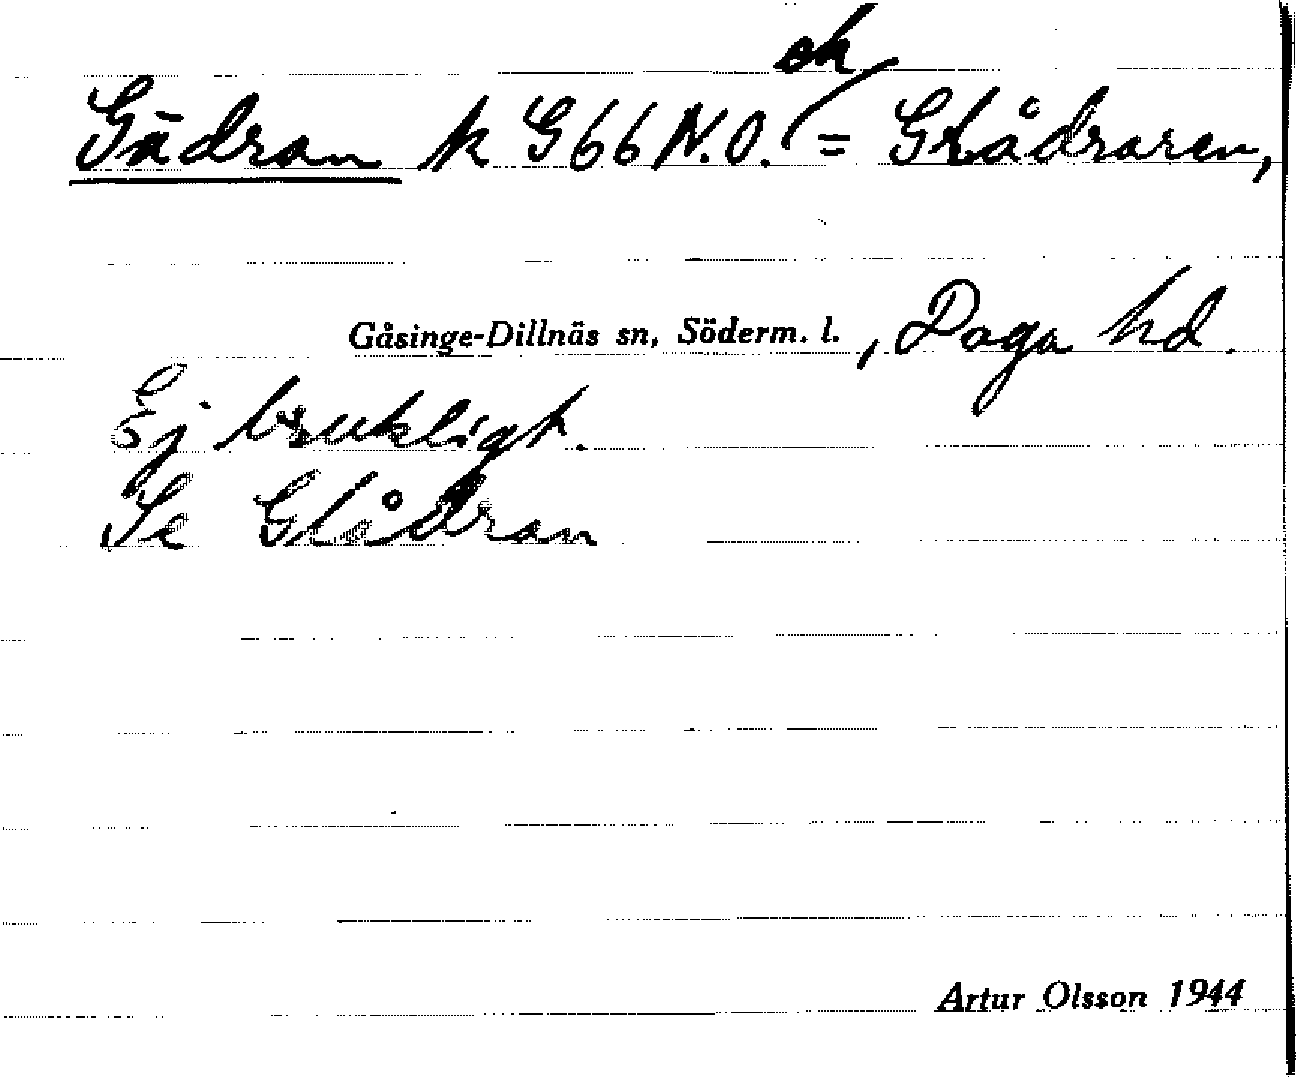 ek
Gädran k G66 N.O. = Glådraren,
Gåsinge-Dillnäs sn, Söderm. l. , Daga hd.
Ej brukligt.
Se Glådran
Artur Olsson 1944